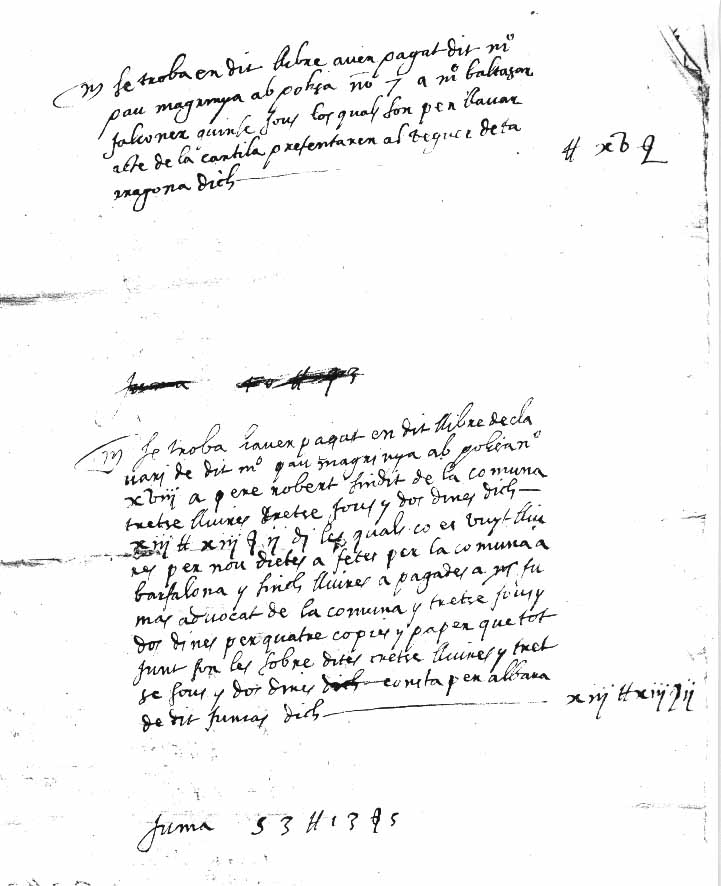 m se troba en dit llibre aver pagat dit mº
pau magrinya ab polisa nº 7 a mº baltasar
falconer quinse sous los quals son per llevar
acte de la cartila presentaren al veguer de ta
rragona dich
tt xb ş
suma
m se troba haver pagat en dit llibre de cla
vari de dit mº pau magrinya ab polisa nº
xbiij a pere robert sindit de la comuna
tretse lliures tretse sous y dos dines dich
xiij tt xiij ş ij di les quals co es vuyt lliu
res per nou dietes a fetes per la comuna a
barsalona y sinch lliures a pagades a ms su
mas advocat de la comuna y tretse sous y
dos dines per quatre copies y paper que tot
junt son les sobre dites tretse lliures y tret
se sous y dos dines dich consta per albara
de dit sumas dich
xiij tt xiij ş ij
suma 53 tt 13 ş 5